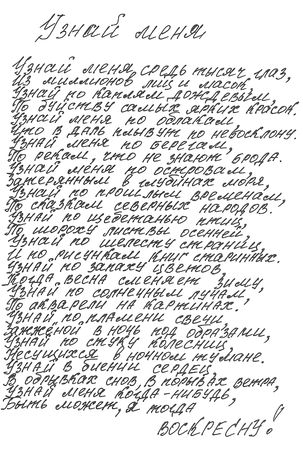 Узнай меня
Узнай меня средь тысяч глаз,
Из миллионов лиц и масок,
Узнай по каплям дождевым,
По буйству самых ярких красок.
Узнай меня по облакам
Что в даль плывут по небосклону.
Узнай меня по берегам,
По рекам, что не знают брода.
Узнай меня по островам,
Затерянным в глубинах моря,
Узнай по прошлым временам,
По сказкам северных народов.
Узнай по щебетанью птиц,
По шороху листвы осенней
Узнай по шелесту страниц,
И по рисункам книг старинных.
Узнай по запаху цветов,
Когда, весна сменяет зиму,
Узнай по солнечным лучам,
По акварели на картинах.
Узнай по пламени свечи
Зажженой в ночь под образами,
Узнай по стуку колесниц,
Несущихся в ночном тумане.
Узнай в биении сердец,
В обрывках снов, в порывах ветра,
Узнай меня когда-нибудь,
Быть может, я тогда
ВОСКРЕСНУ!